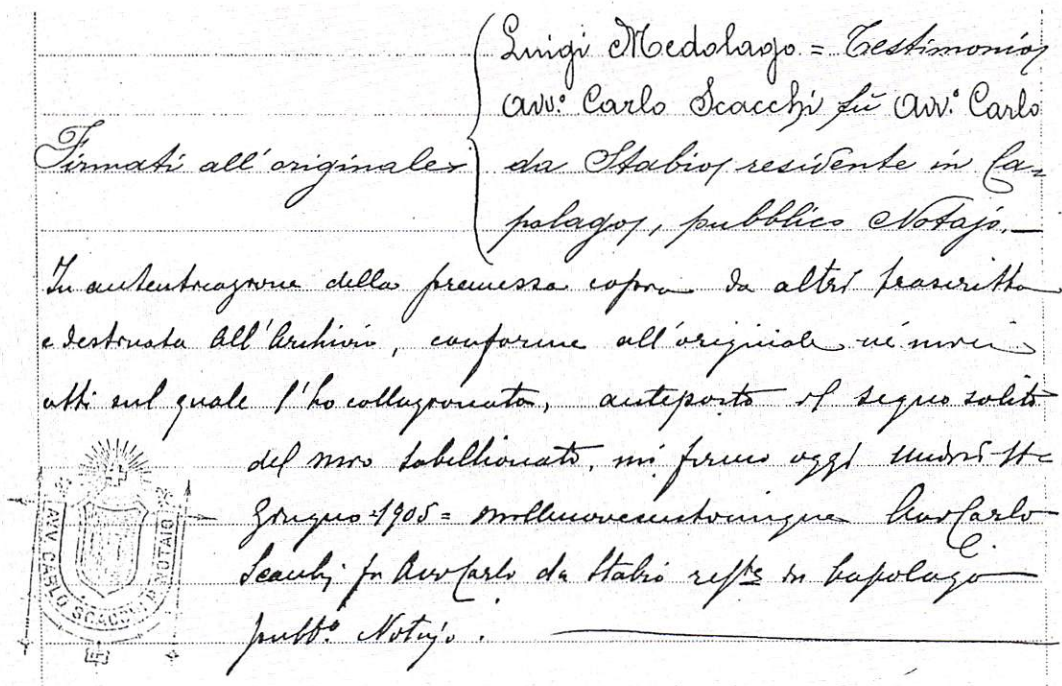 Luigi Medolago = Testimonio
Avv.º Carlo Scacchi fù Avv.º Carlo
Firmati all'originale
da Stabio, residente in Ca=
polago, pubblico Notajo.
In autenticazione della premessa copia da altri trascritta
e destinata all'Archivio, conforme all'originale ne' miei
atti sul quale l'ho collazionata, anteposto il segno solito
del mio tabellionato, mi firmo oggi undici 11=
Giugno 1905 = millenovecentocinque Avv Carlo
Scacchi fu Avv Carlo da Stabio in Capolago
pubb.º Notajo.
AVV. CARLO SCACCHI P. NOTAIO